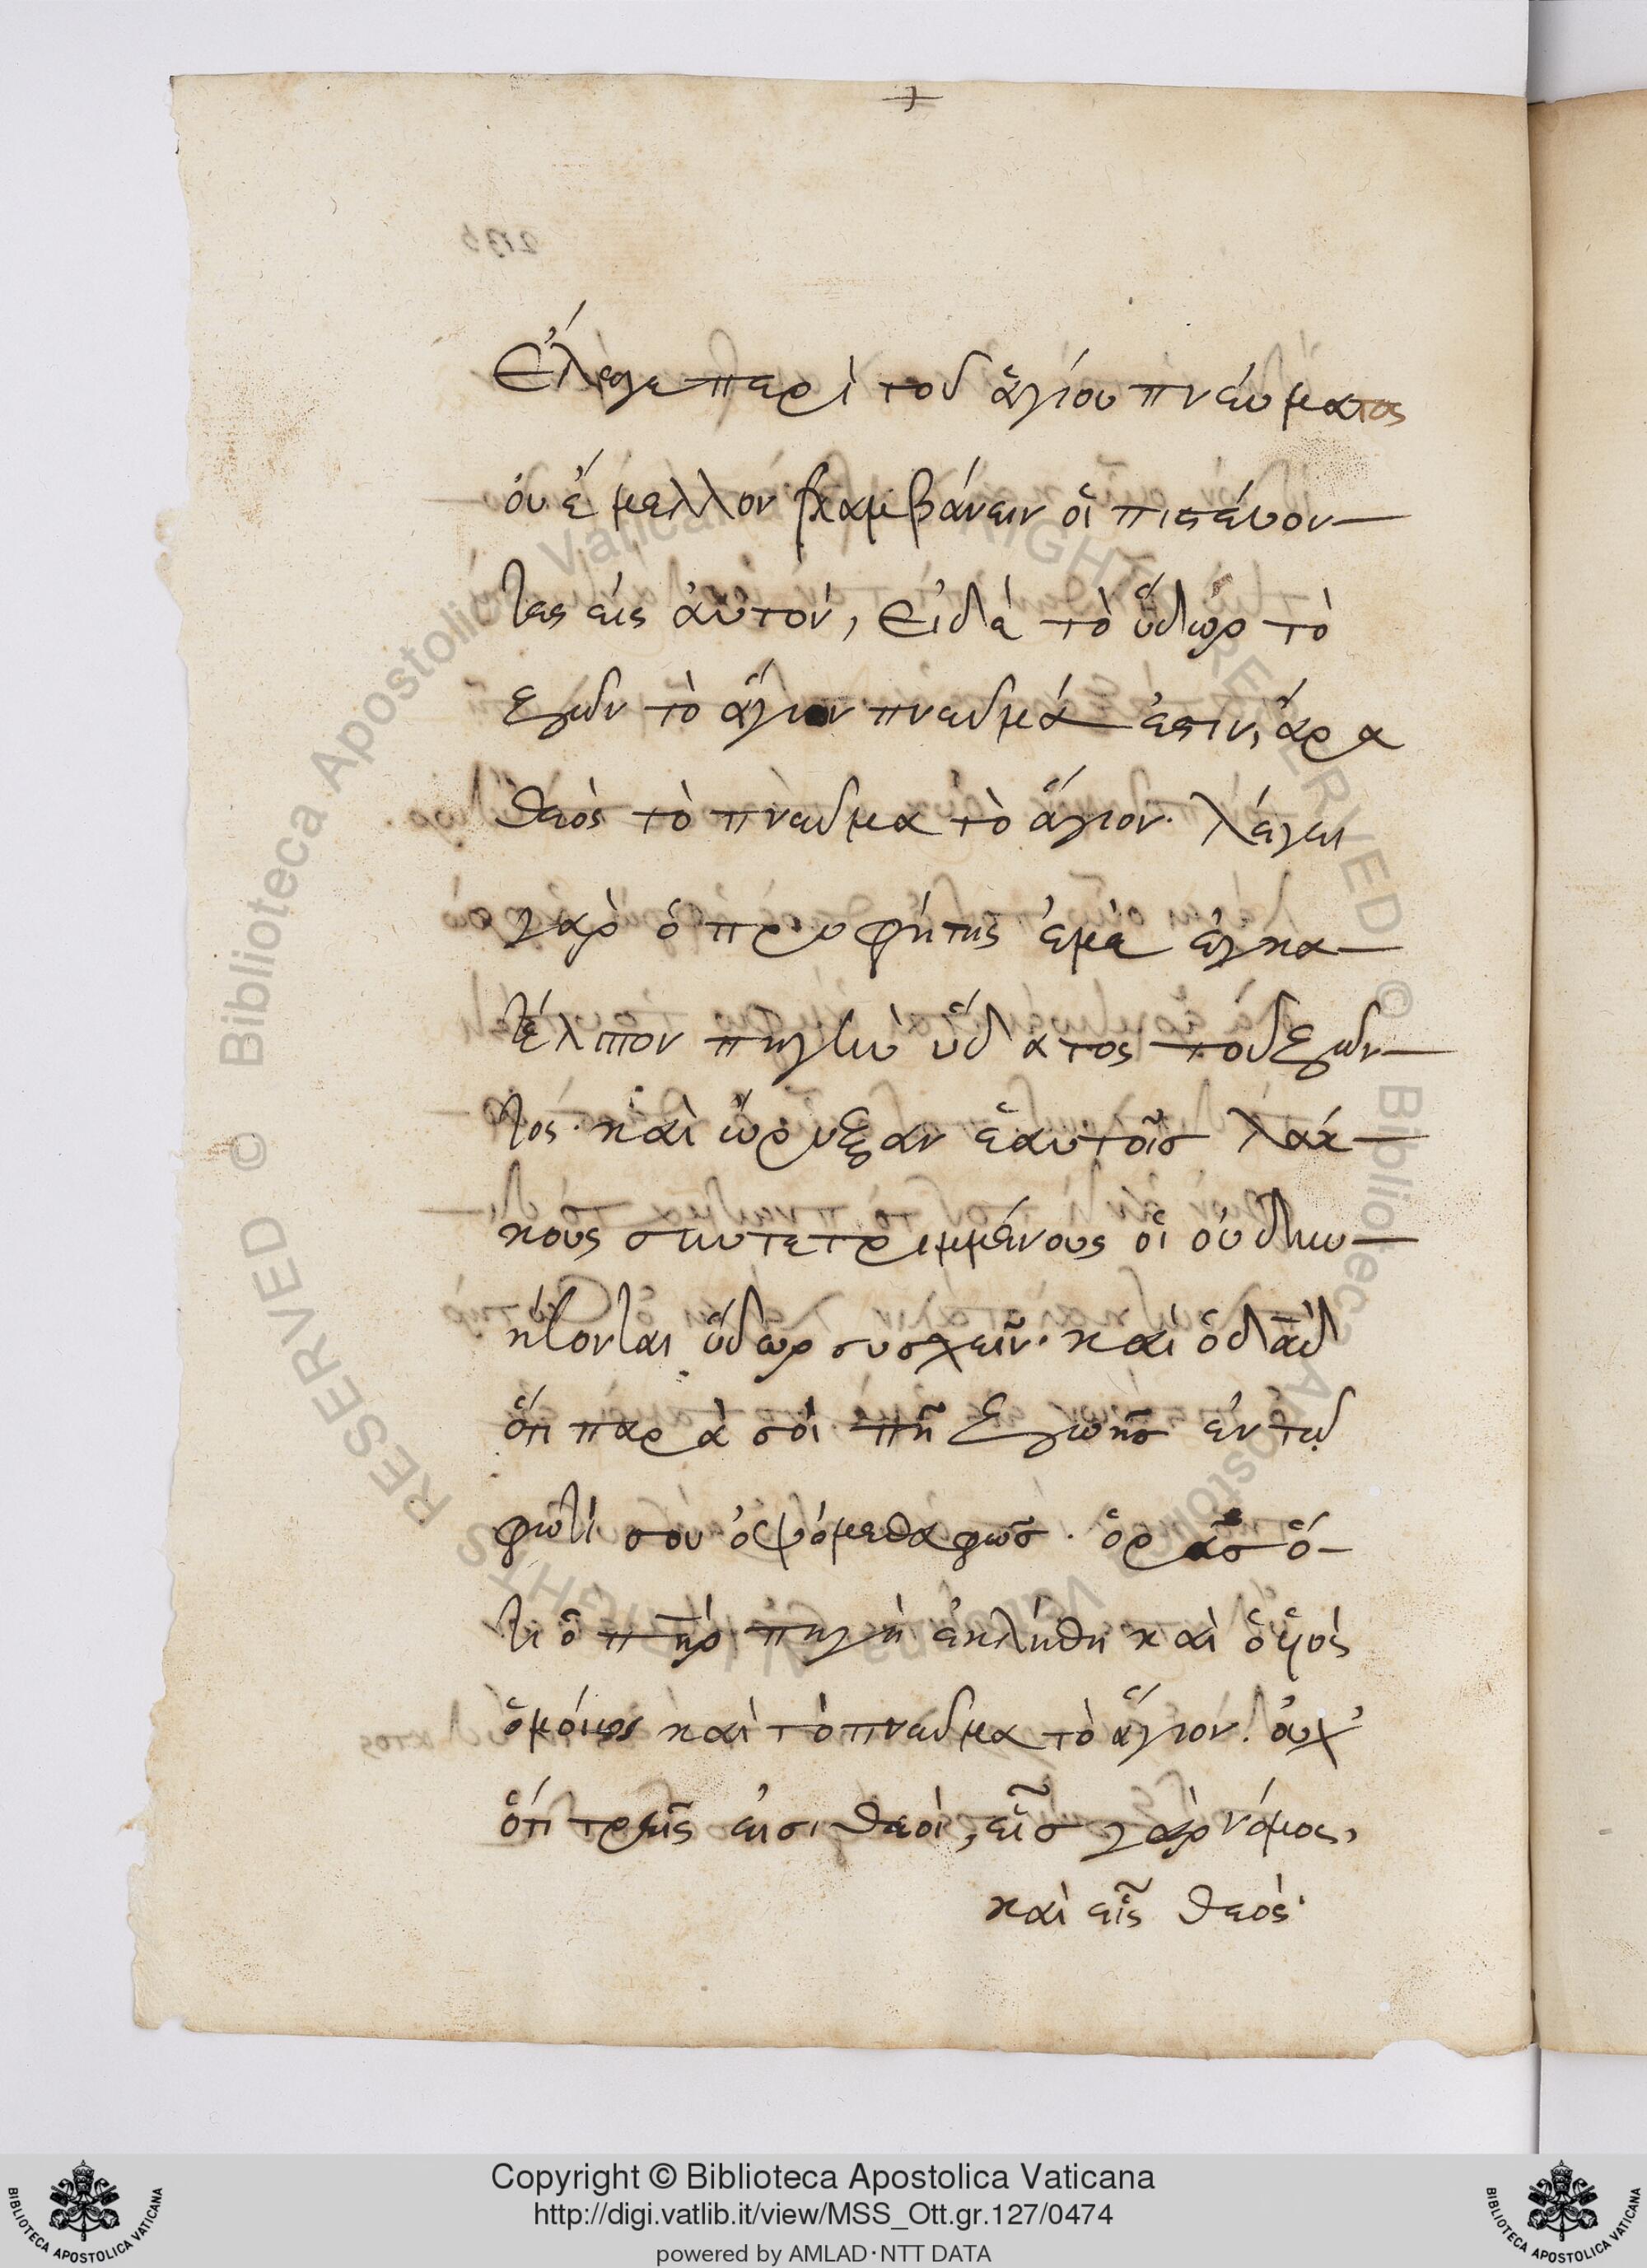 Ἐλεγε περὶ τοῦ ἁγίου πνεύματος
οὑ ἔμελλον λαμβάνειν οἱ πιστέυον—
τες εἰς ἀυτον, Ει δὲ τὸ ὕδωρ τὸ
ζῶν τὸ ἅγιον πνεῦμά ἐστιν, ἄρα
θεὸς τὸ πνεῦμα τὸ ἅγιον. λέγει
γὰρ ὁ προφήτης ἐμὲ ἐγκα—
τέλιπον πηγὴν ὕδατος τοῦ ζῶν—
τος. καὶ ὤρυξαν ἑαυτοῖσ λάκ—
κους συντετριμμένους οἱ οὐ δυν—
ήσονται ὕδωρ συσχεῖν. καὶ ὁ δᾱδ
ὅτι παρὰ σὸι πη ζωῆσ ἐν τῷ
φωτί σου ὀψόμεθα φῶσ. ὁρᾶσ ὅ—
τι ὁ πηρ πηγὴ ἐκλήθη καὶ ὁ υἱὸς
ὁμόιως καὶ τὸ πνεῦμα τὸ ἅγιον. ὀυχ'
ὅτι τρεῖς ἐισι θεοὶ, εἷσ γὰρ νόμος,
καὶ εἷς θεὸς.
Copyright © Biblioteca Apostolica Vaticana
http://digi.vatlib.it/view/MSS_Ott.gr.127/0474
powered by AMLAD·NTT DATA
BIBLIOTECA APOSTOLICA VATICANA
BIBLIOTECA APOSTOLICA VATICANA
© Biblioteca Apostolica Vaticana ALL RIGHTS RESERVED